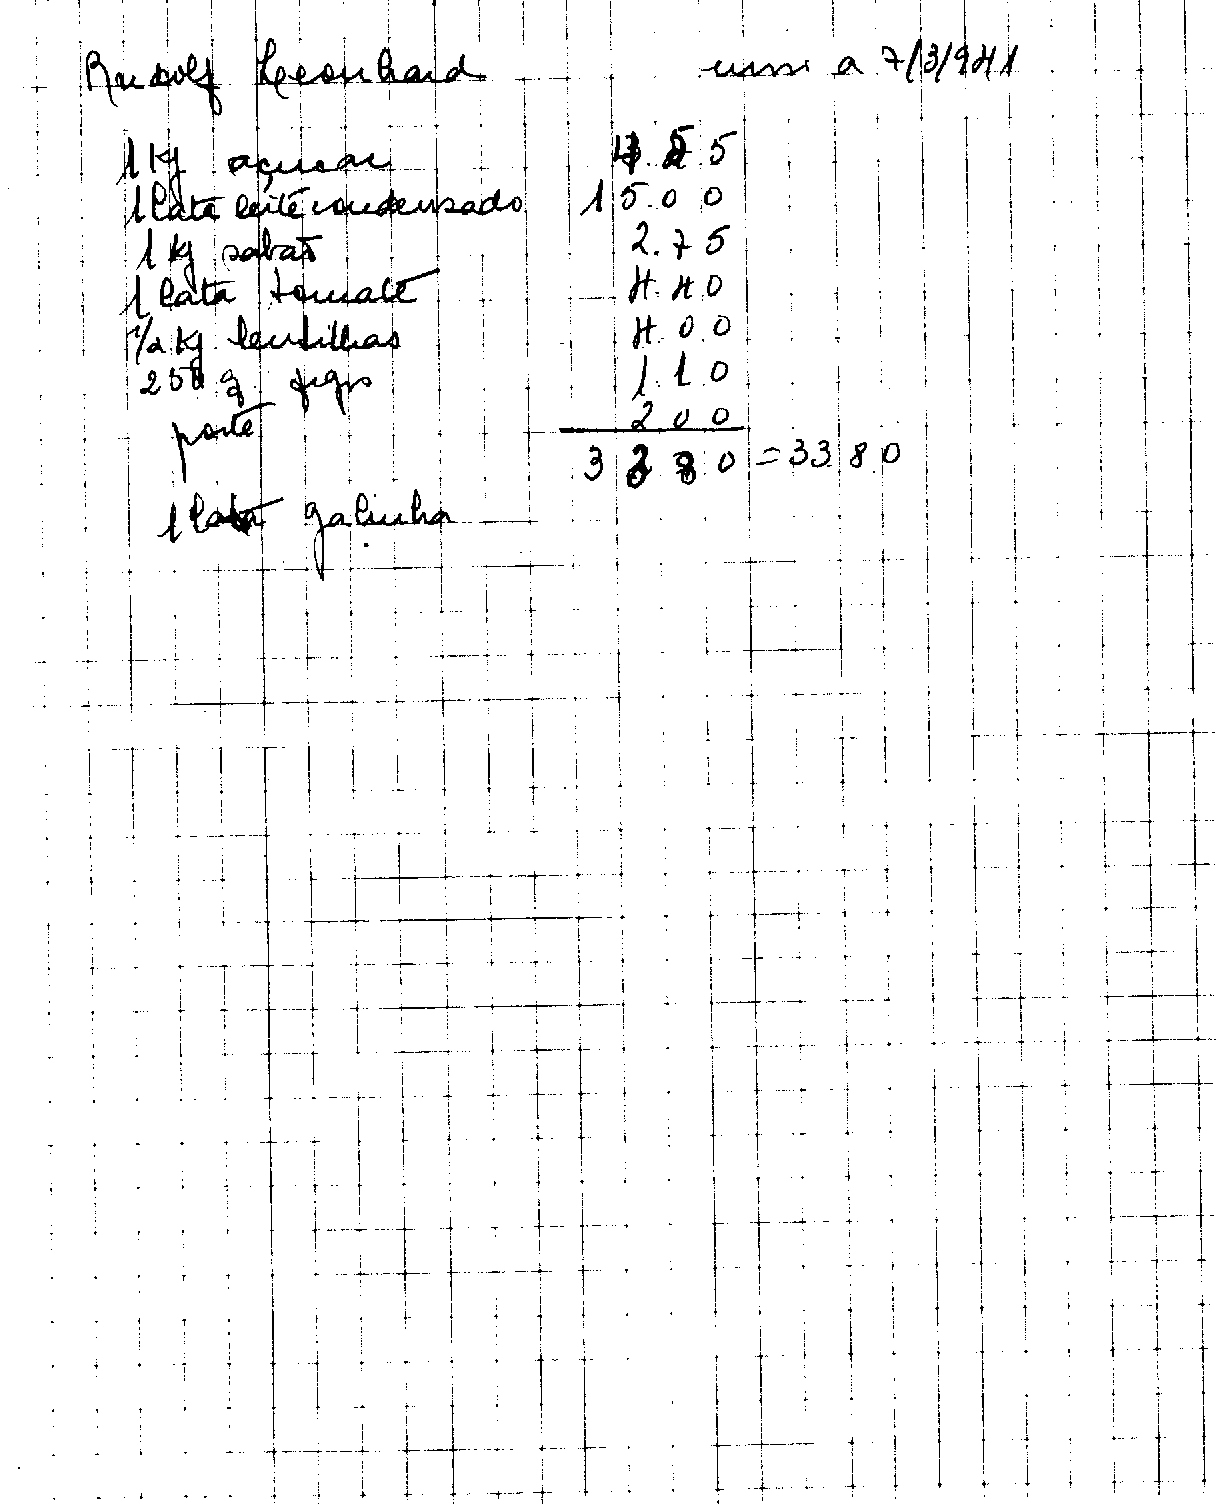 Rudolf Leonhard a 7/3/941
1 Kg açucar 4.55
1 lata leite condensado 15.00
1 Kg sabão 2.75
1 lata tomate 4.40
1/2 Kg lentilhas 4.00
250 g figos 1.10
porte 200
= 3380
1 lata galinha